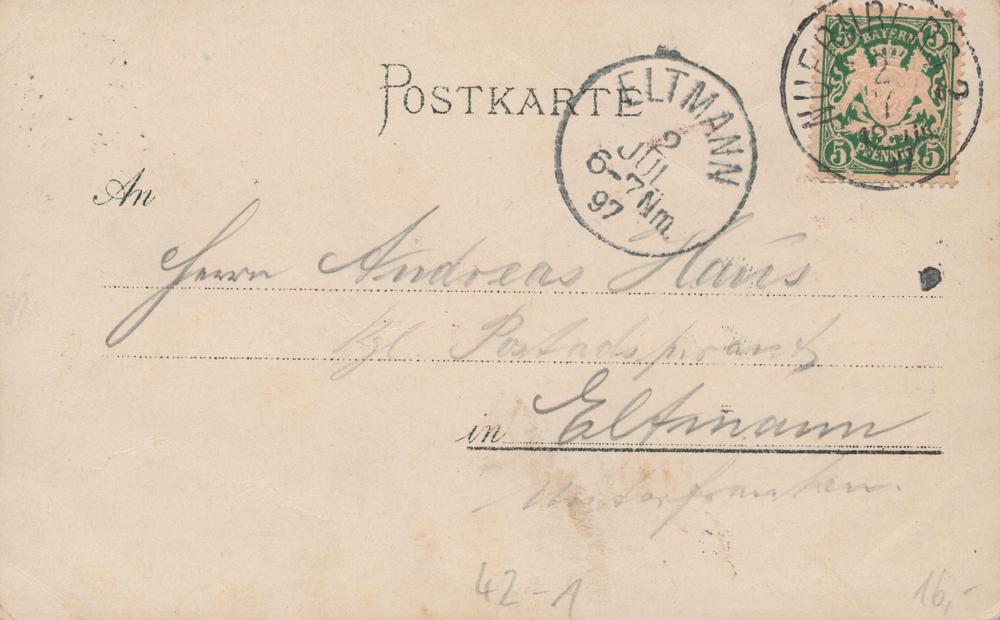 POSTKARTE
ELTMANN
2
JUL
6-7Nm.
97
NUERNBERG 2
BAYERN
5 5
PFENNIG
5 5
An
Herrn Andreas Haus
Kgl. Postadspirant
in Eltmann
Unterfranken.
42-1
16,-